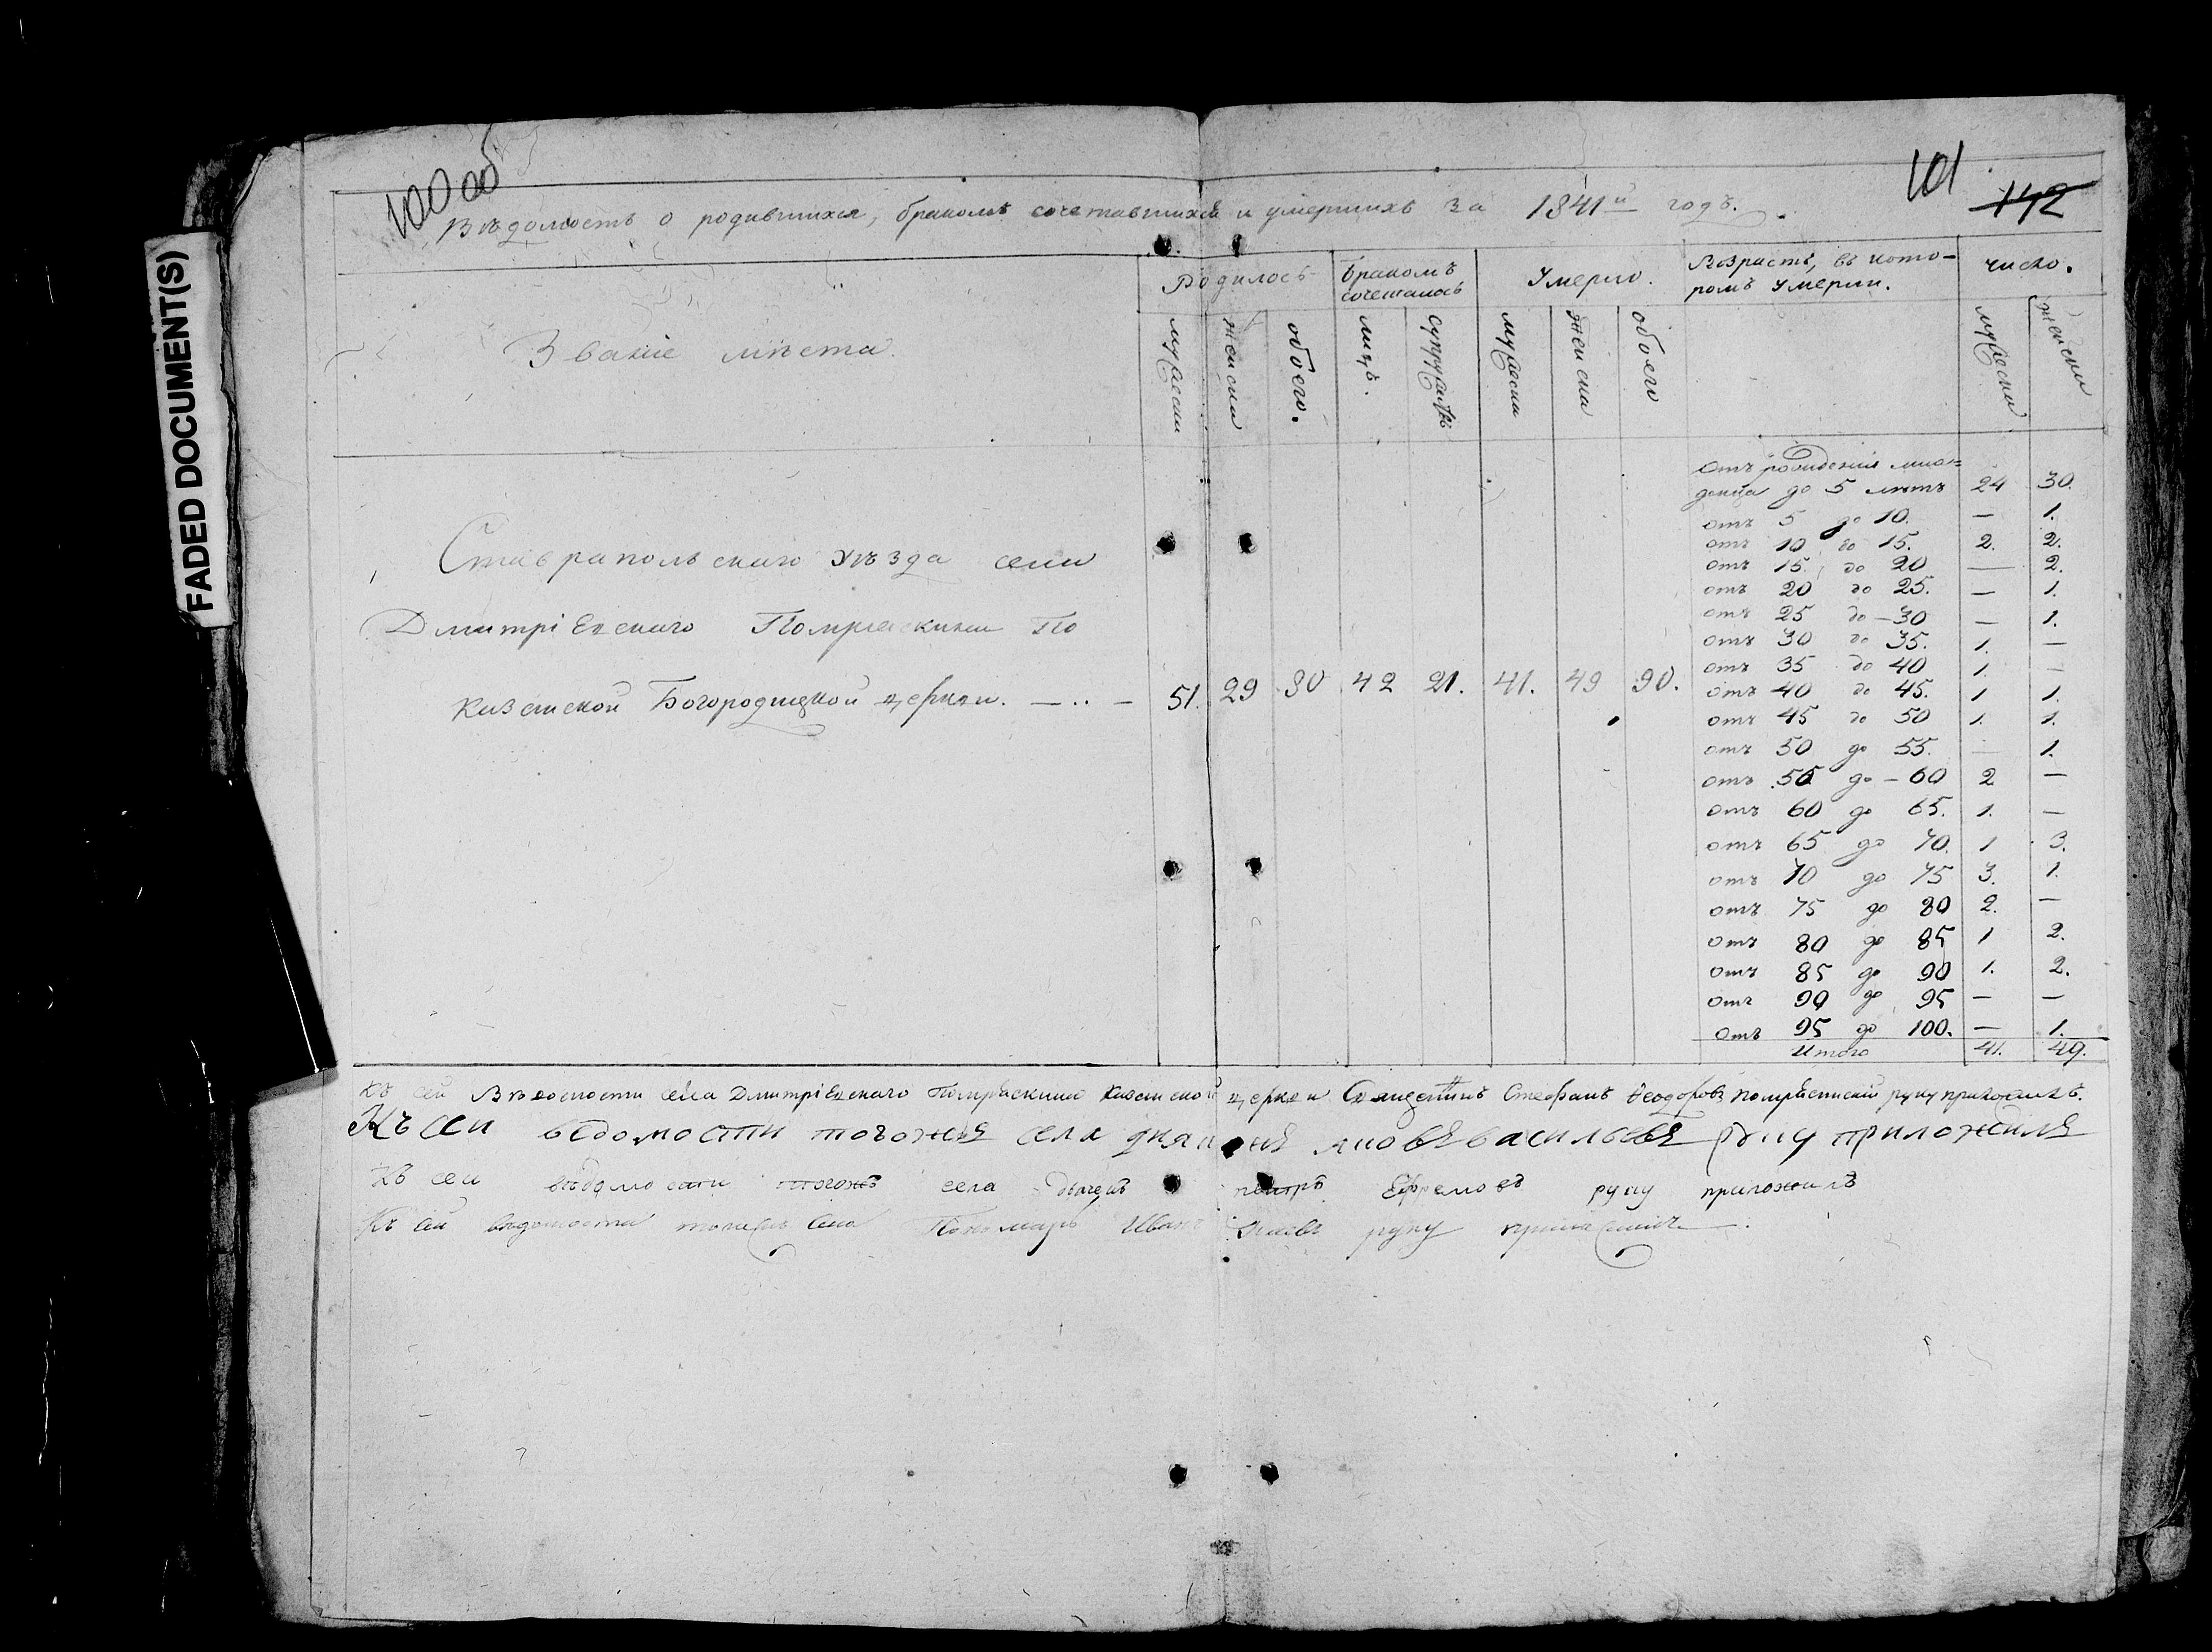 FADED DOCUMENT(S)
100 об
101
142
Вѣдомость о родившихся, бракомъ сочетавшихся и умершихъ за 1841й годъ.
Званіе мѣста.
Родилось
бракомъ сочеталось
Умерло.
Возрастъ, въ которомъ умерли.
число.
мужеска
женска
обоего.
лицъ.
супружествъ
мужеска
женска
обоего
мужески
женски
Ставрапольскаго уѣзда села
Дмитріевскаго Помряскина По
казанской Богородицкой церкви. — .. — 51. 29 80 42 21. 41. 49 90.
Отъ рожденія мла=
денца до 5 лѣтъ 24 30.
отъ 5 до 10. — 1.
отъ 10 до 15. 2. 2.
отъ 15. до 20 — 2.
отъ 20 до 25. — 1.
отъ 25 до – 30 — 1.
отъ 30 до 35. 1. —
отъ 35 до 40 1. —
отъ 40 до 45. 1 1.
отъ 45 до 50 1. 1.
отъ 50 до 55. — 1.
отъ 55 до – 60 2 —
отъ 60 до 65. 1. —
отъ 65 до 70. 1 3.
отъ 70 до 75 3. 1.
отъ 75 до 80 2. —
отъ 80 до 85 1 2.
отъ 85 до 90 1. 2.
отъ 90 до 95 — —
отъ 95 до 100. — 1.
Итого 41. 49.
Къ сей Вѣдомости села Дмитріевскаго Помряскино казанской церкви Священникъ Стефанъ Ѳеодоровъ Помряскинскій руку приложилъ.
Къ сеи ведомости тогожъ села диаконъ яковъ васильевъ руку приложилъ
Къ сеи вѣдомости тогожъ села дьячекъ петръ Ефремовъ руку приложилъ
Къ сей вѣдомости тогожъ села Пономарь Иванъ руку приложилъ.